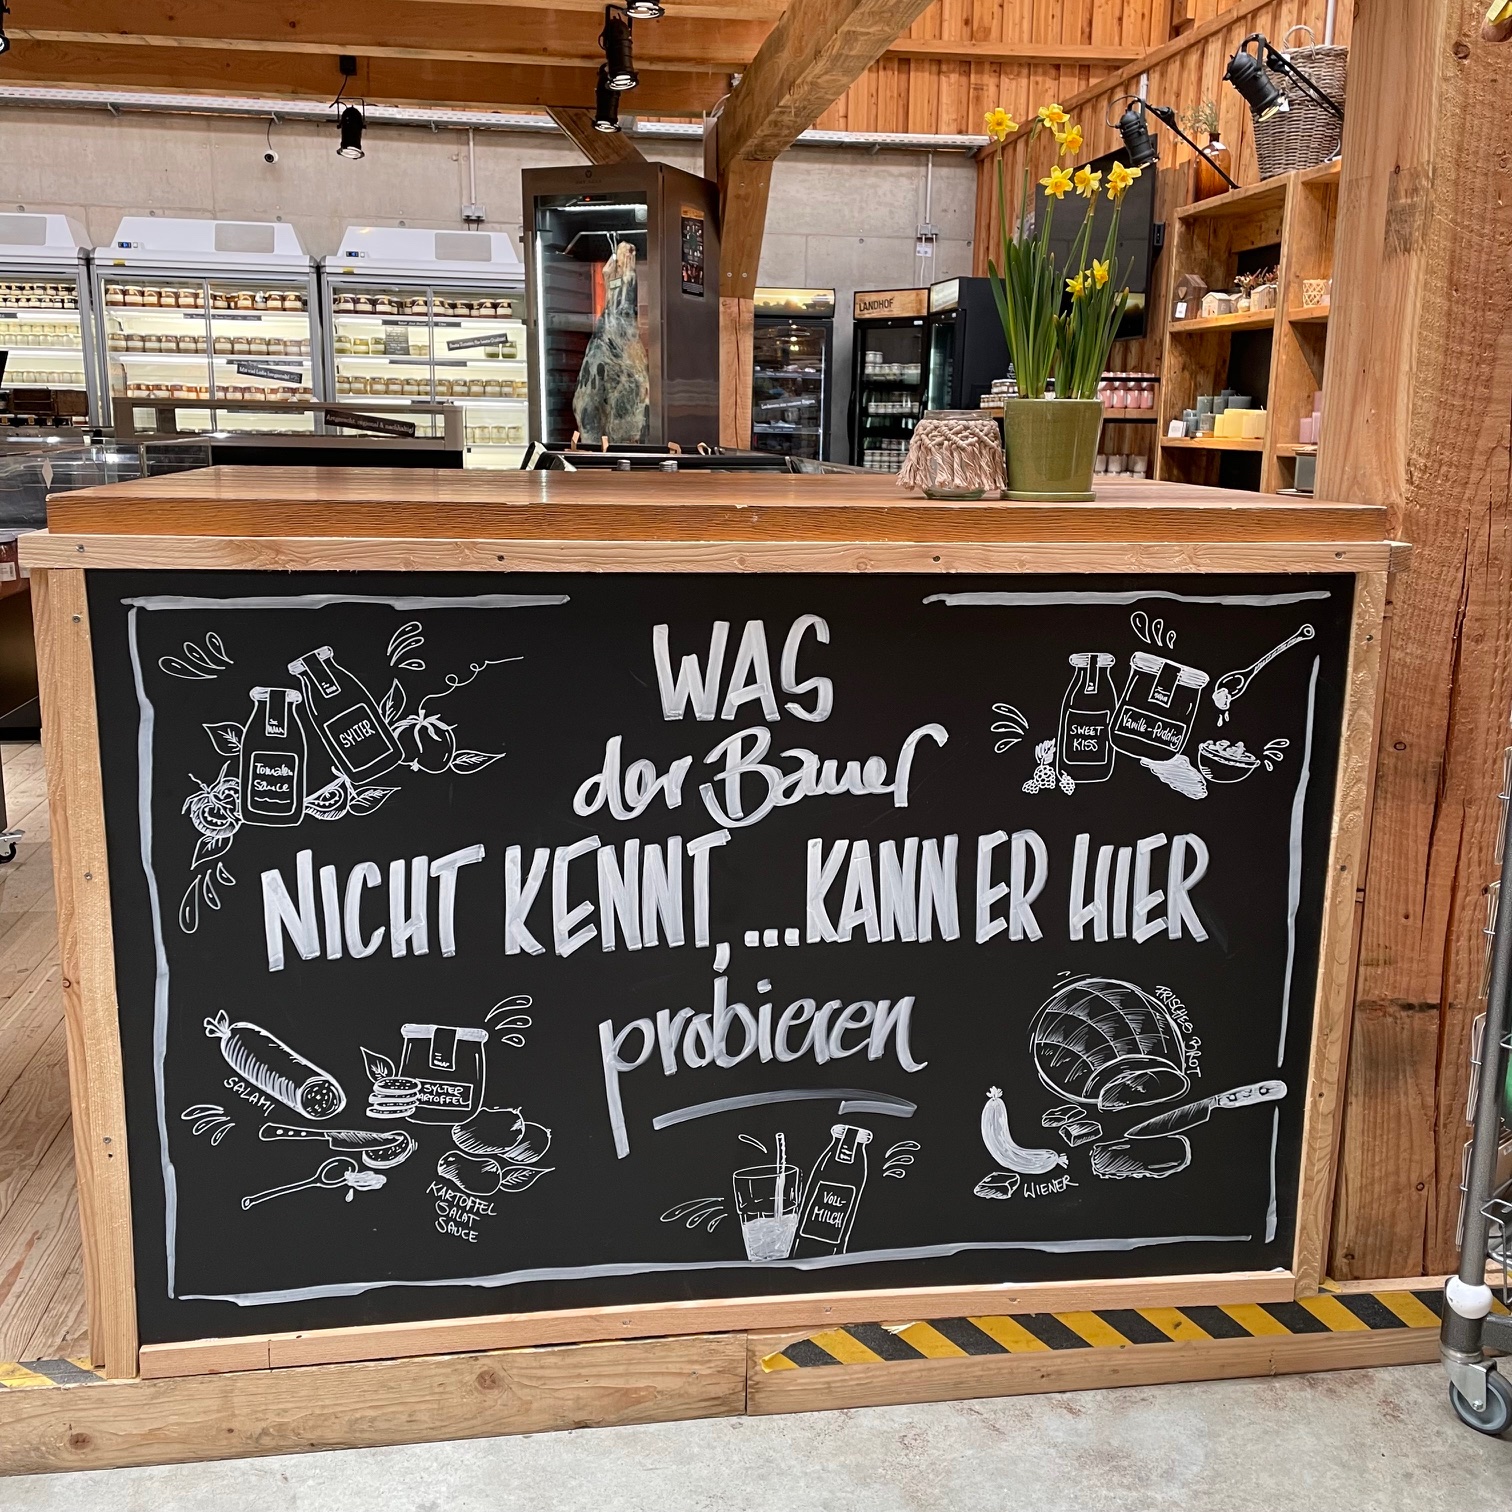 LANDHOF
WAS
der Bauer
NICHT KENNT,...KANN ER HIER
probieren
Tomaten
Sauce
SYLTER
SWEET
KISS
Vanille-Pudding
SALAMI
SYLTER
KARTOFFEL
KARTOFFEL
SALAT
SAUCE
VOLL-
MILCH
FRISCHES BROT
WIENER